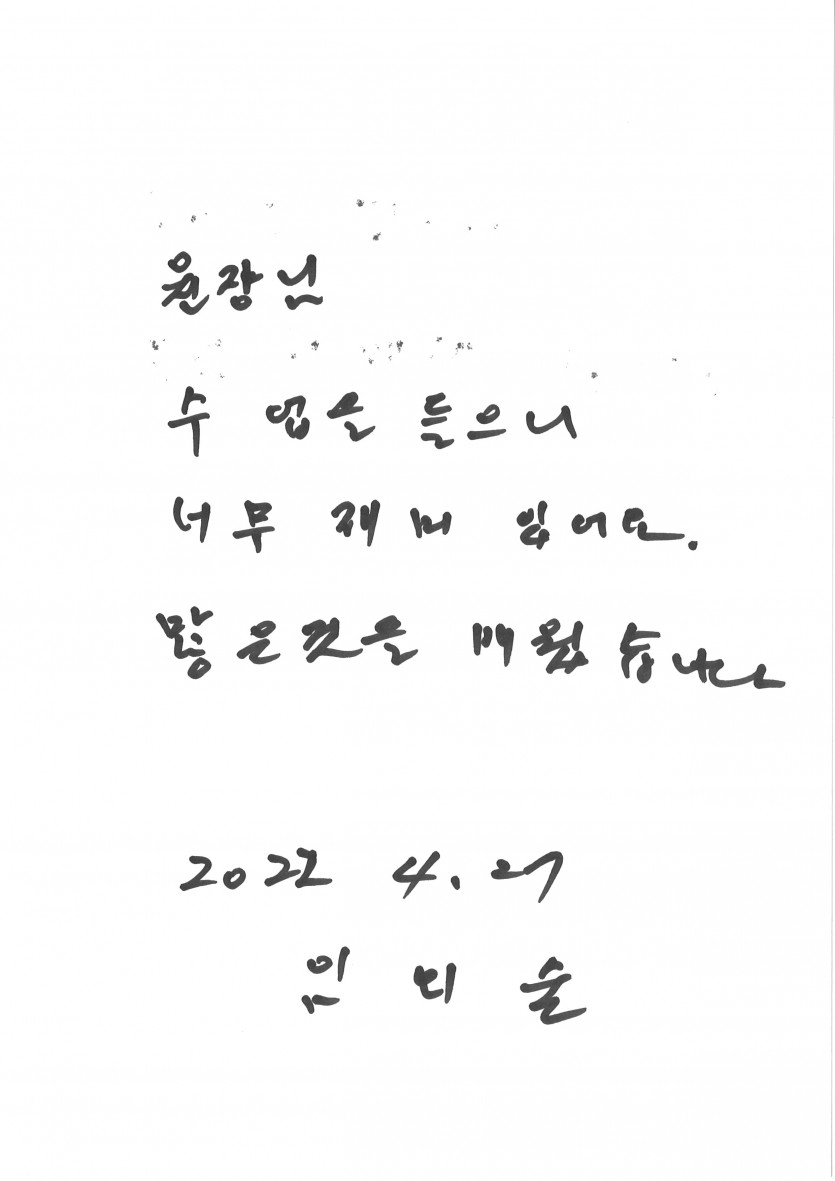 원장님
수업을 들으니
너무 재미 있어요.
많은것을 배웠습니다
2022 4. 27
임 미 술